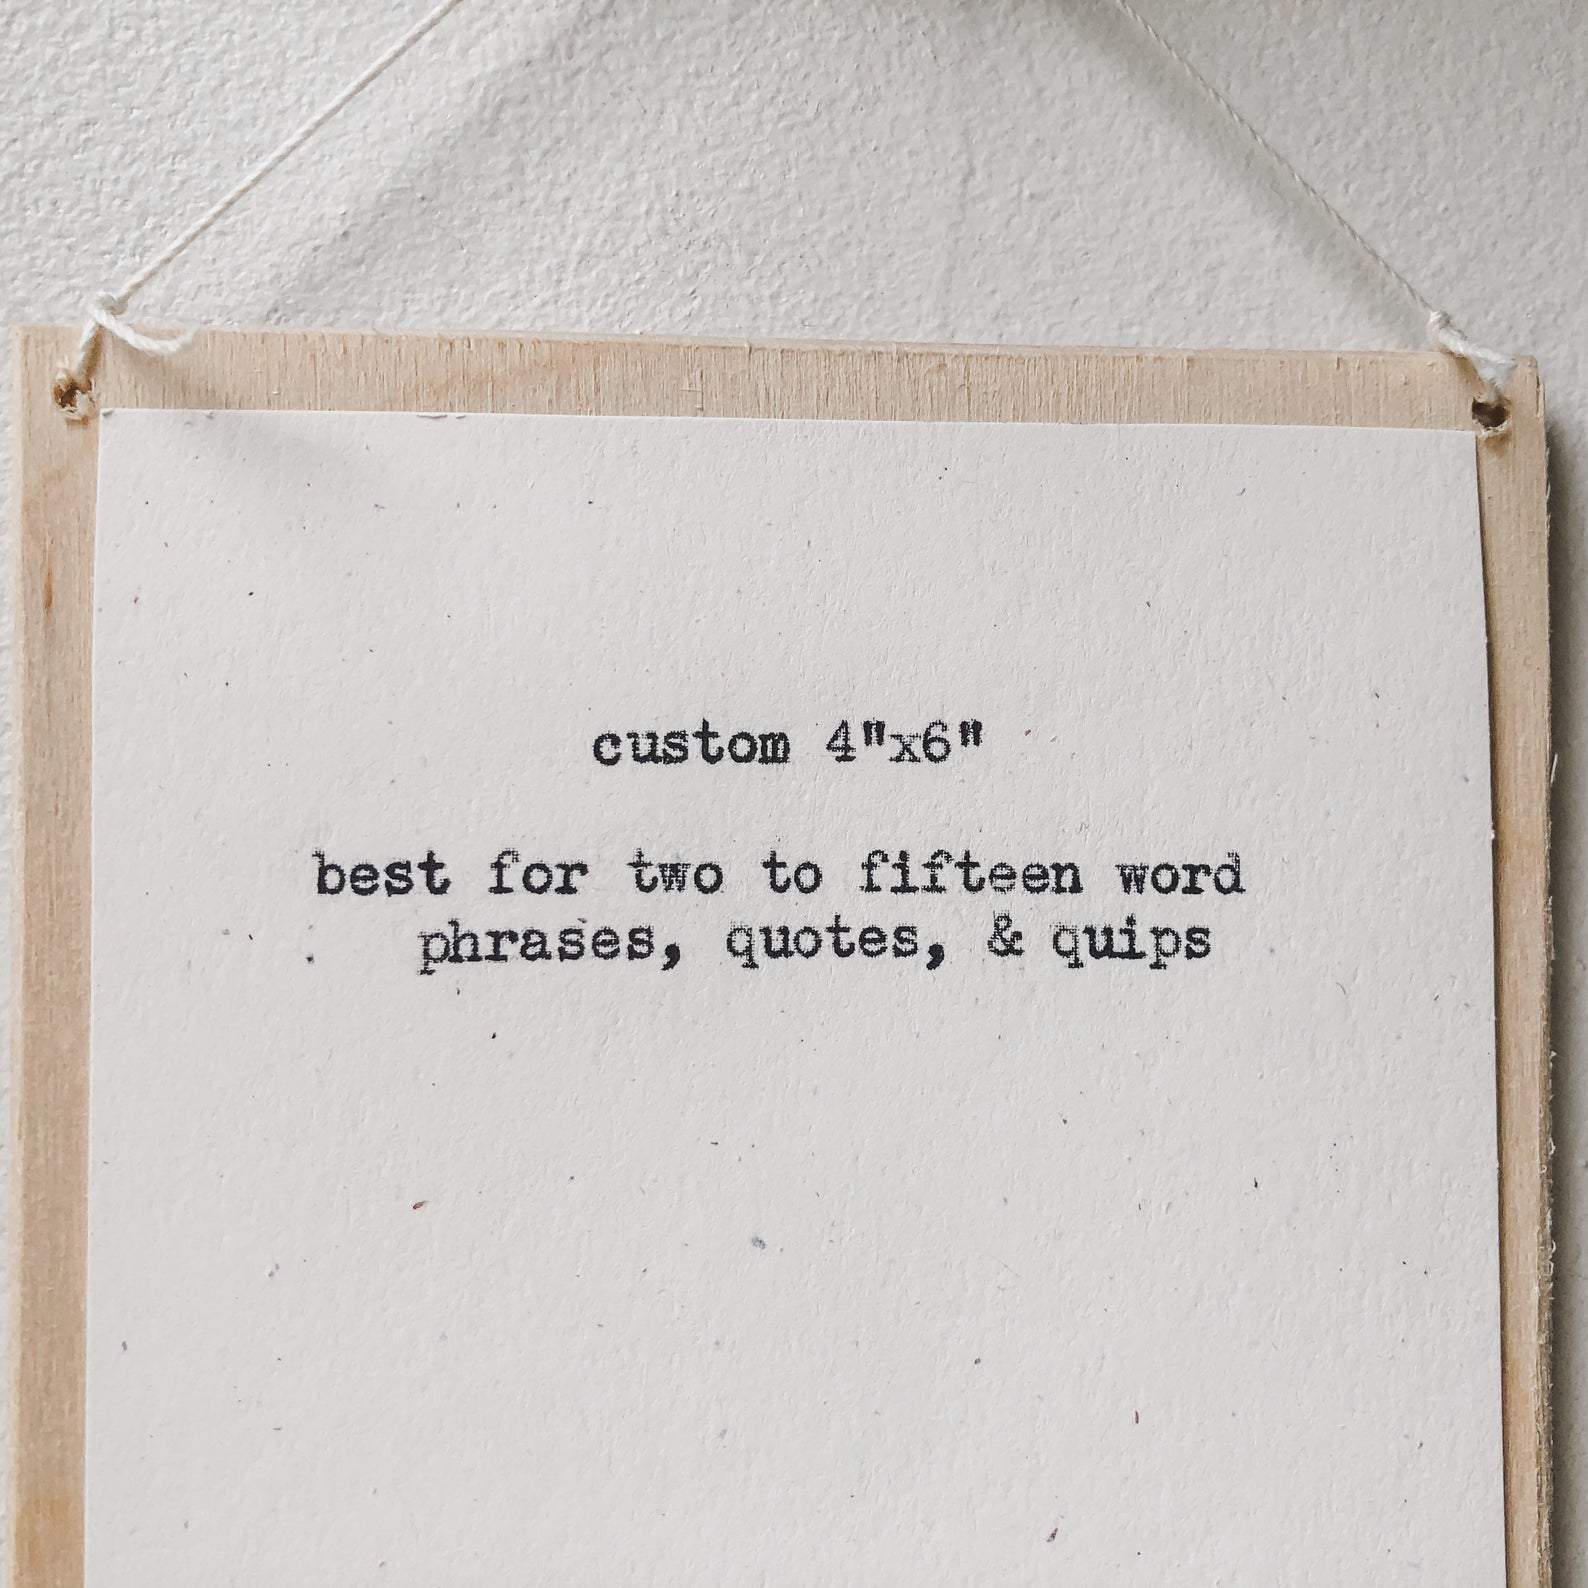 custom 4"x6"
best for two to fifteen word
phrases, quotes, & quips